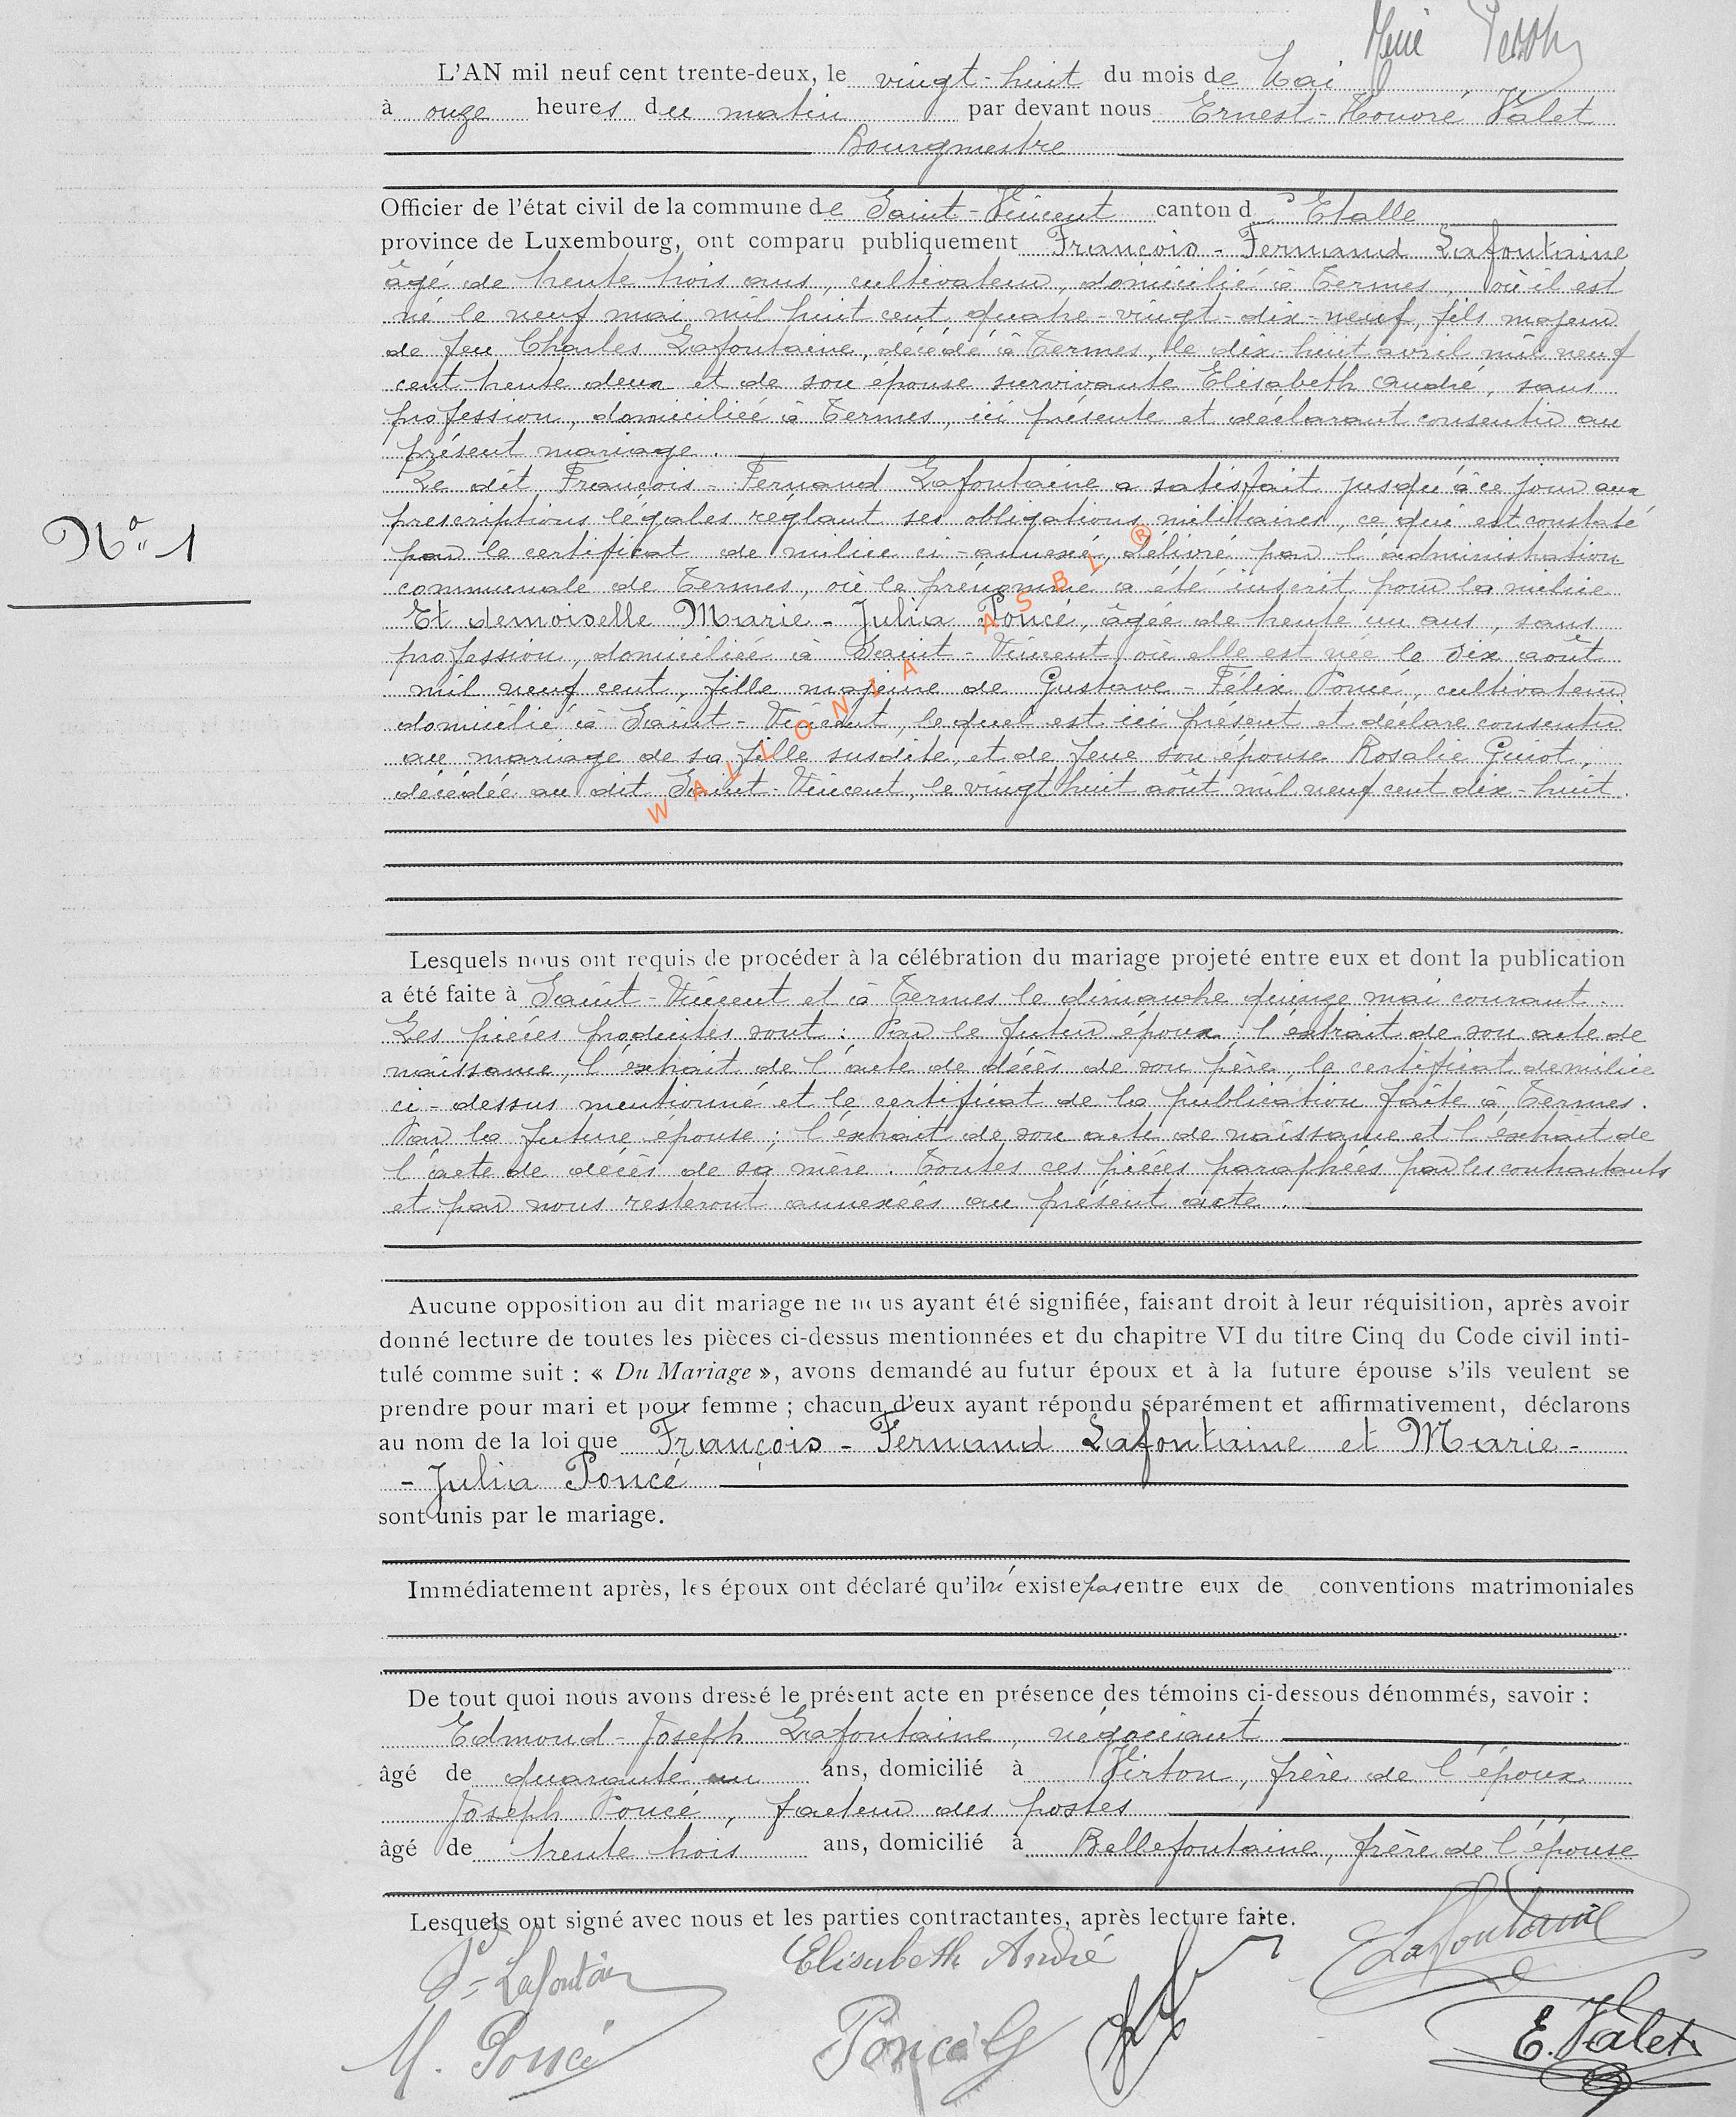 L'AN mil neuf cent trente-deux, le vingt-huit du mois de Mai
à onze heures du matin par devant nous Ernest-Honoré Valet
Bourgmestre
Officier de l'état civil de la commune de Saint-Vincent canton d'Etalle
province de Luxembourg, ont comparu publiquement François-Fernand Lafontaine
âgé de trente trois ans, cultivateur, domicilié à Termes, où il est
né le neuf mai mil huit cent quatre-vingt-dix-neuf, fils majeur
de feu Charles Lafontaine, décédé à Termes, le dix-huit avril mil neuf
cent trente deux et de son épouse survivante Elisabeth André, sans
profession, domiciliée à Termes, ici présente et déclarant consentir au
présent mariage.
Le dit François-Fernand Lafontaine a satisfait jusqu'à ce jour aux
prescriptions légales réglant ses obligations militaires, ce qui est constaté
par le certificat de milice ci-annexé, délivré par l'administration
communale de Termes, où le prénommé a été inscrit pour la milice
Nº 1
Et demoiselle Marie-Julia Poncé, âgée de trente un ans, sans
profession, domiciliée à Saint-Vincent où elle est née le six août
mil neuf cent, fille majeure de Gustave-Félix Poncé, cultivateur
domicilié à Saint-Vincent, lequel est ici présent et déclare consentir
au mariage de sa fille susdite, et de feue son épouse Rosalie Guiot,
décédée au dit Saint-Vincent, le vingt huit août mil neuf cent dix-huit.
WALLONIA ASBL ®
Lesquels nous ont requis de procéder à la célébration du mariage projeté entre eux et dont la publication
a été faite à Saint-Vincent et à Termes le dimanche quinze mai courant.
Les pièces produites sont : Par le futur époux : l'extrait de son acte de
naissance, l'extrait de l'acte de décès de son père, le certificat de milice
ci-dessus mentionné et le certificat de la publication faite à Termes.
Par la future épouse : l'extrait de son acte de naissance et l'extrait de
l'acte de décès de sa mère. Toutes ces pièces paraphées par les contractants
et par nous resteront annexées au présent acte.
Aucune opposition au dit mariage ne nous ayant été signifiée, faisant droit à leur réquisition, après avoir
donné lecture de toutes les pièces ci-dessus mentionnées et du chapitre VI du titre Cinq du Code civil inti-
tulé comme suit : « Du Mariage », avons demandé au futur époux et à la future épouse s'ils veulent se
prendre pour mari et pour femme ; chacun d'eux ayant répondu séparément et affirmativement, déclarons
au nom de la loi que François-Fernand Lafontaine et Marie-
-Julia Poncé
sont unis par le mariage.
Immédiatement après, les époux ont déclaré qu'il n'existe pas entre eux de conventions matrimoniales
De tout quoi nous avons dressé le présent acte en présence des témoins ci-dessous dénommés, savoir :
Edmond-Joseph Lafontaine, négociant
âgé de quarante un ans, domicilié à Virton, frère de l'époux
Joseph Poncé, facteur des postes
âgé de trente trois ans, domicilié à Bellefontaine, frère de l'épouse
Lesquels ont signé avec nous et les parties contractantes, après lecture faite.
F= Lafontain Elisabeth André E Lafontaine
M. Poncé Poncé G E. Valet